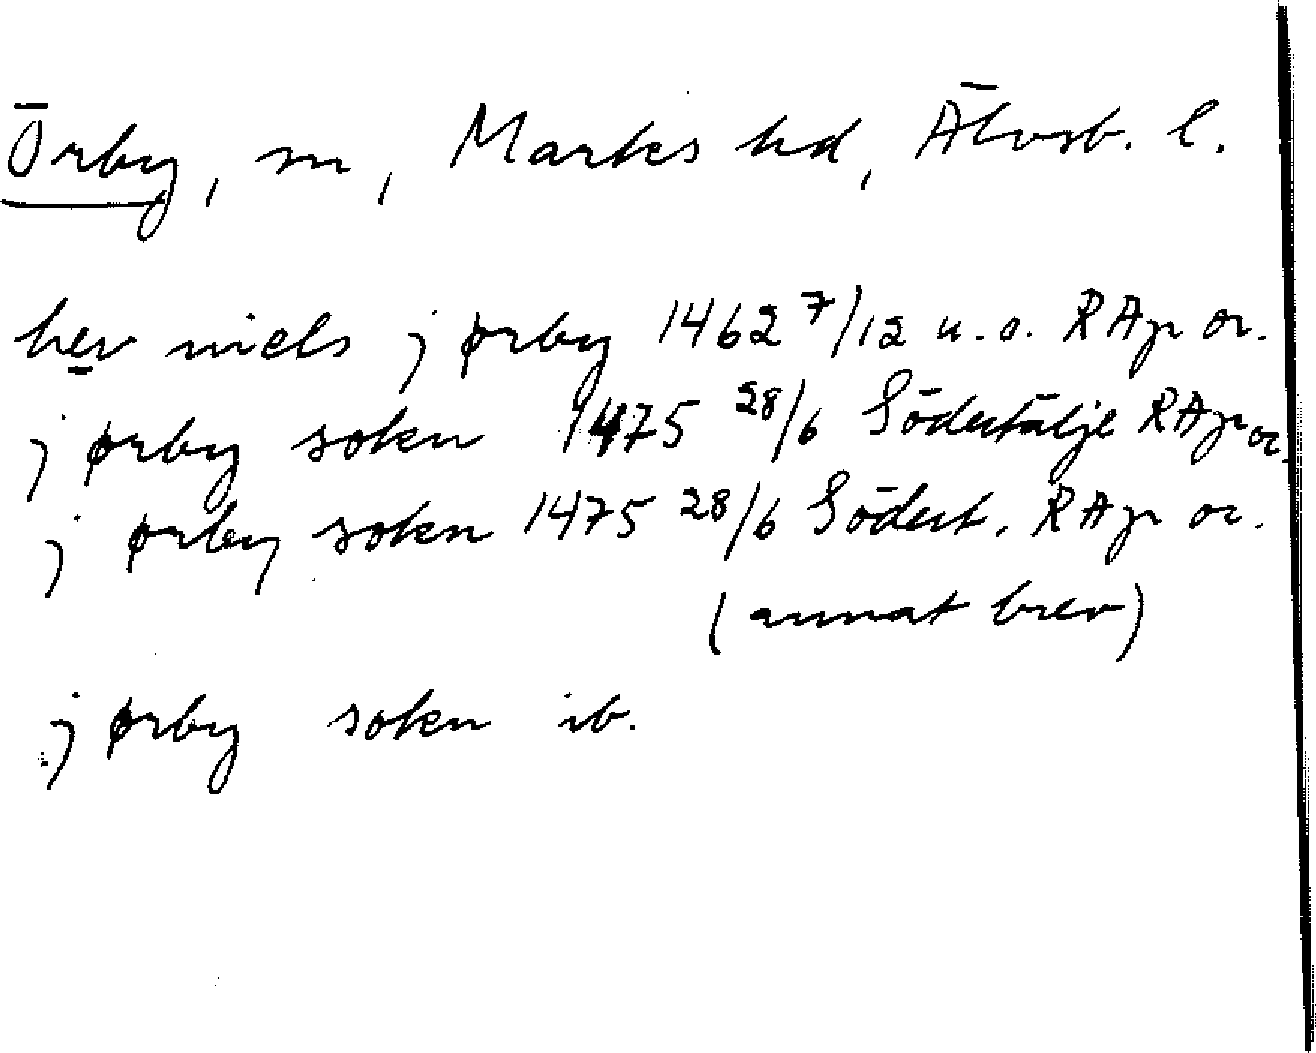 Örby, sn, Marks hd, Älvsb. l.
her niels j ørby 1462 7/12 u.o. RAp or.
j ørby sokn 1475 28/6 Södertälje RAp or.
j ørby sokn 1475 28/6 Södert. RAp or.
(annat brev)
j ørby sokn ib.